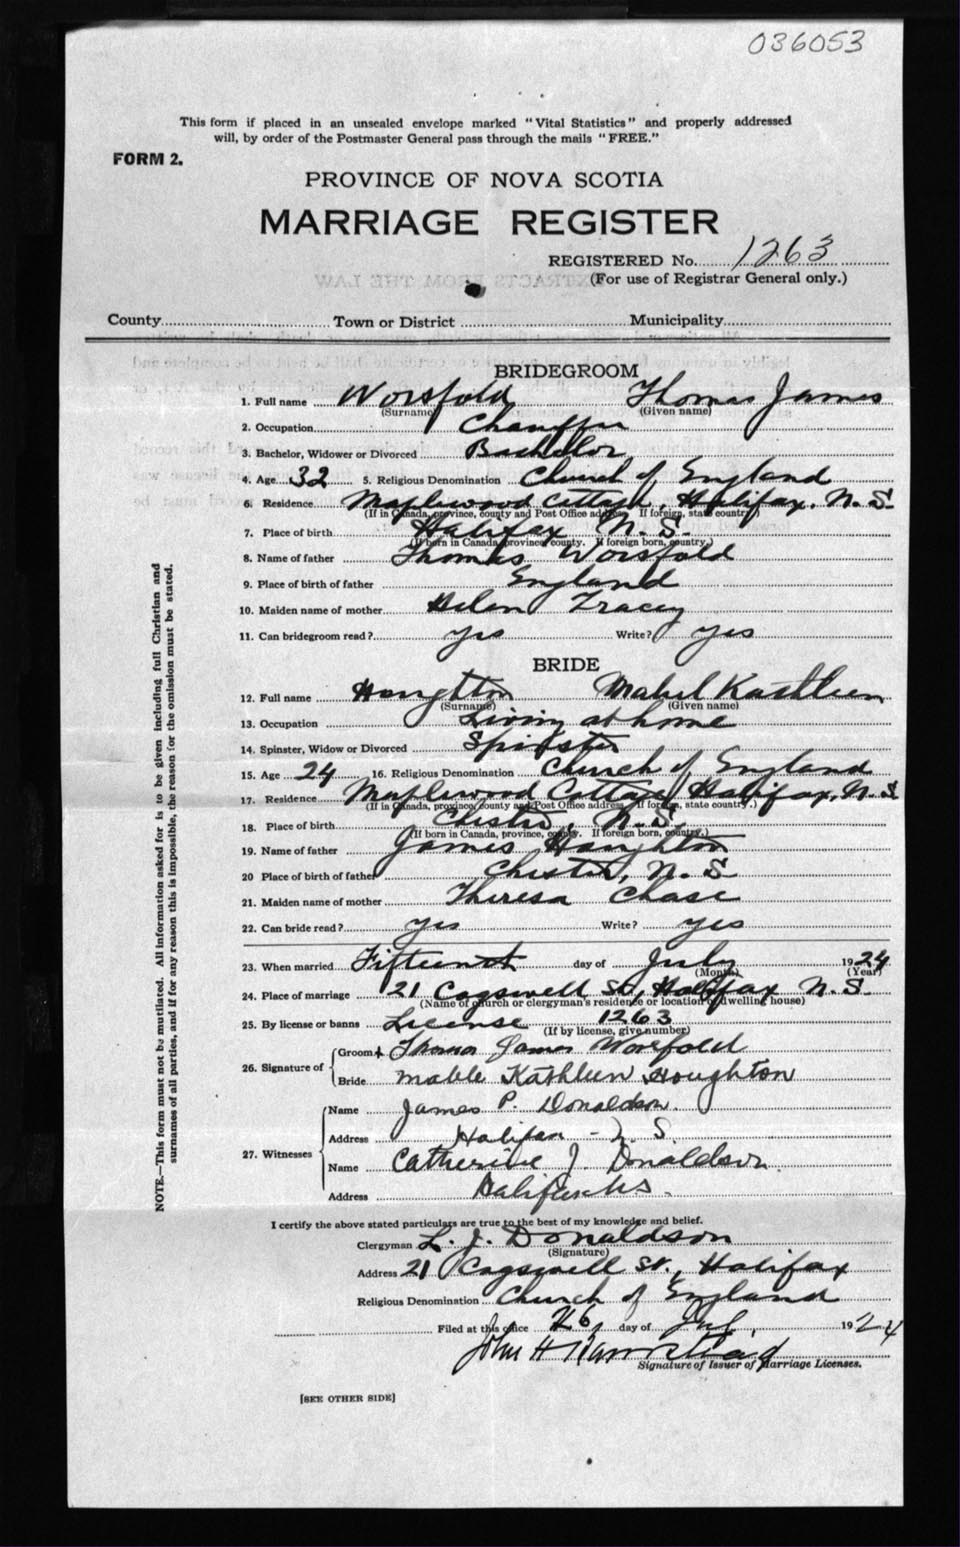 036053
This form if placed in an unsealed envelope marked "Vital Statistics" and properly addressed
will, by order of the Postmaster General pass through the mails "FREE."
FORM 2.
PROVINCE OF NOVA SCOTIA
MARRIAGE REGISTER
REGISTERED No. 1263
(For use of Registrar General only.)
County Town or District Municipality
BRIDEGROOM
1. Full name Worsfold Thomas James
(Surname) (Given name)
2. Occupation Chauffer
3. Bachelor, Widower or Divorced Bachelor
4. Age 32 5. Religious Denomination Church of England
6. Residence Maplewood Cottage, Halifax, N.S.
(If in Canada, province, county and Post Office address. If foreign, state country)
7. Place of birth Halifax N.S.
(If born in Canada, province, county. If foreign born, country.)
8. Name of father Thomas Worsfold
9. Place of birth of father England
10. Maiden name of mother Helen Tracey
11. Can bridegroom read? yes Write? yes
BRIDE
12. Full name Houghton Mabel Kathleen
(Surname) (Given name)
13. Occupation Living at home
14. Spinster, Widow or Divorced Spinster
15. Age 24 16. Religious Denomination Church of England
17. Residence Maplewood Cottage, Halifax, N.S.
(If in Canada, province, county and Post Office address. If foreign, state country.)
18. Place of birth Chester, N.S.
(If born in Canada, province, county. If foreign born, country.)
19. Name of father James Houghton
20 Place of birth of father Chester, N.S
21. Maiden name of mother Theresa Chase
22. Can bride read? yes Write? yes
23. When married Fifteenth day of July 1924
(Month) (Year)
24. Place of marriage 21 Cogswell St, Halifax N.S.
(Name of church or clergyman's residence or location of dwelling house)
25. By license or banns License 1263
(If by license, give number)
26. Signature of
Groom Thomas James Worsfold
Bride Mable Kathleen Houghton
27. Witnesses
Name James P. Donaldson.
Address Halifax - N.S.
Name Catherine J. Donaldson.
Address Halifax N.S.
I certify the above stated particulars are true to the best of my knowledge and belief.
Clergyman L. J. Donaldson
(Signature)
Address 21 Cogswell St., Halifax
Religious Denomination Church of England
Filed at this office 26 day of July 1924
John H
Signature of Issuer of Marriage Licenses.
[SEE OTHER SIDE]
NOTE.—This form must not be mutilated. All information asked for is to be given including full Christian and
surnames of all parties, and if for any reason this is impossible, the reason for the omission must be stated.